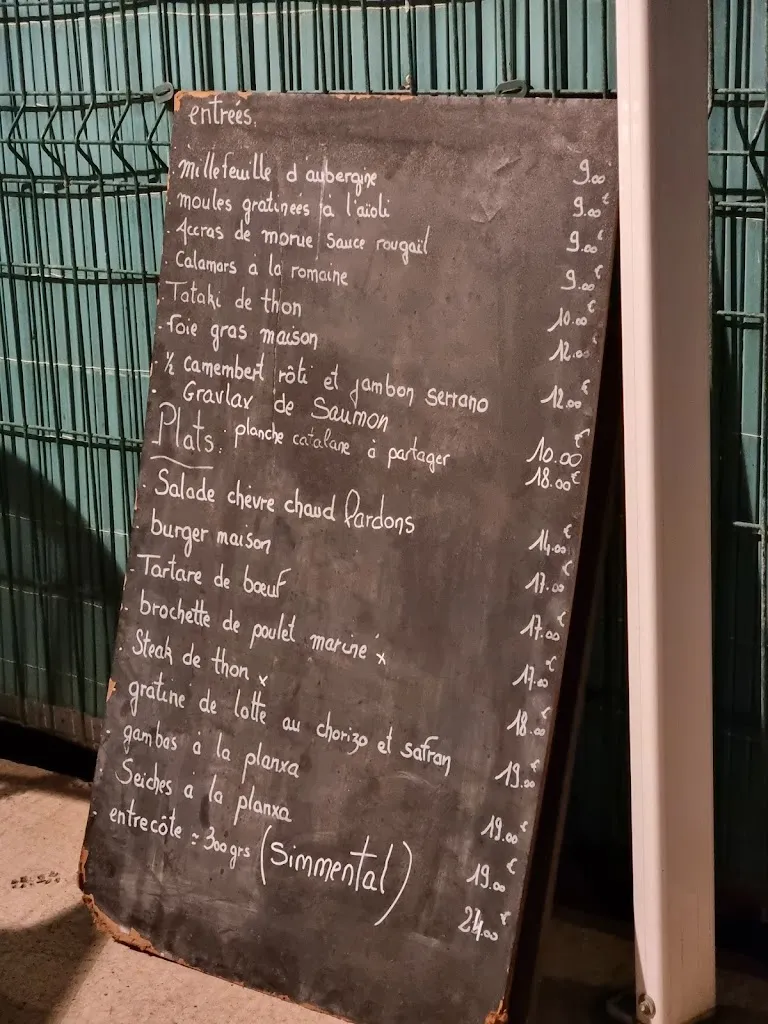 entrées.
- millefeuille d'aubergine 9.00€
- moules gratinées à l'aïoli 9.00€
- Accras de morue sauce rougail 9.00€
- Calamars à la romaine 9.00€
- Tataki de thon 10.00€
- foie gras maison 12.00€
- ½ camembert rôti et jambon serrano 12.00€
- Gravlax de Saumon 10.00€
Plats: planche catalane à partager 18.00€
- Salade chèvre chaud lardons 14.00€
burger maison 17.00€
- Tartare de bœuf 17.00€
- brochette de poulet mariné x 17.00€
- Steak de thon x 18.00€
- gratine de lotte au chorizo et safran 19.00€
- gambas à la planxa 19.00€
- Seiches à la planxa 19.00€
- entrecôte ≃ 300 grs (Simmental) 24.00€